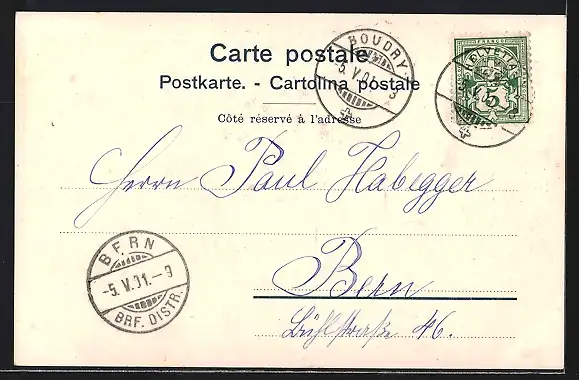 Carte postale
Postkarte. - Cartolina postale
Côté réservé à l'adresse
BOUDRY
5.V.01.-3
HELVETIA
FRANCO
5
Herrn Paul Habegger
Bern
Bühlstraße 46.
BERN
-5.V.01.-9
BRF. DISTR.